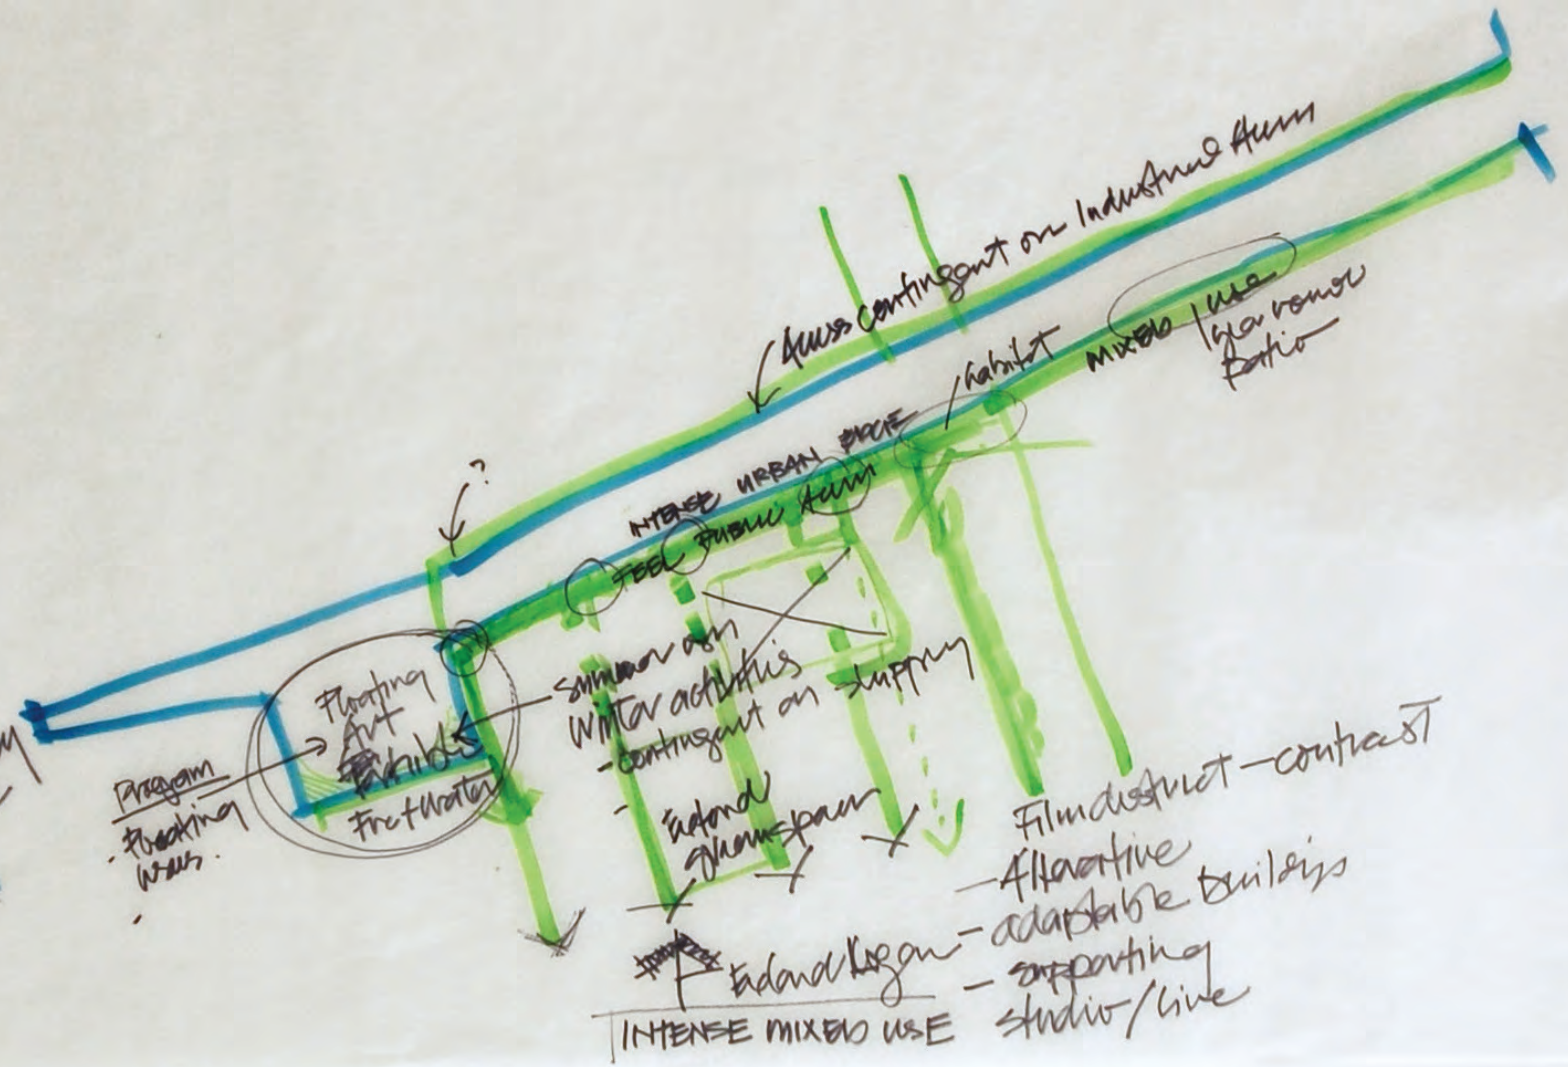 Access Contingent on Industrial
habitat
MIXED USE
Ratio
?
INTENSE URBAN EDGE
FEEL PUBLIC
Floating
Art
Exhibits
Program
Floating
uses.
Summer
Winter activities
- contingent on shipping
- Extend
greenspace
Film district - contrast
- Alternative
- adaptable buildings
- supporting
studio/live
Extend Logan
INTENSE MIXED USE